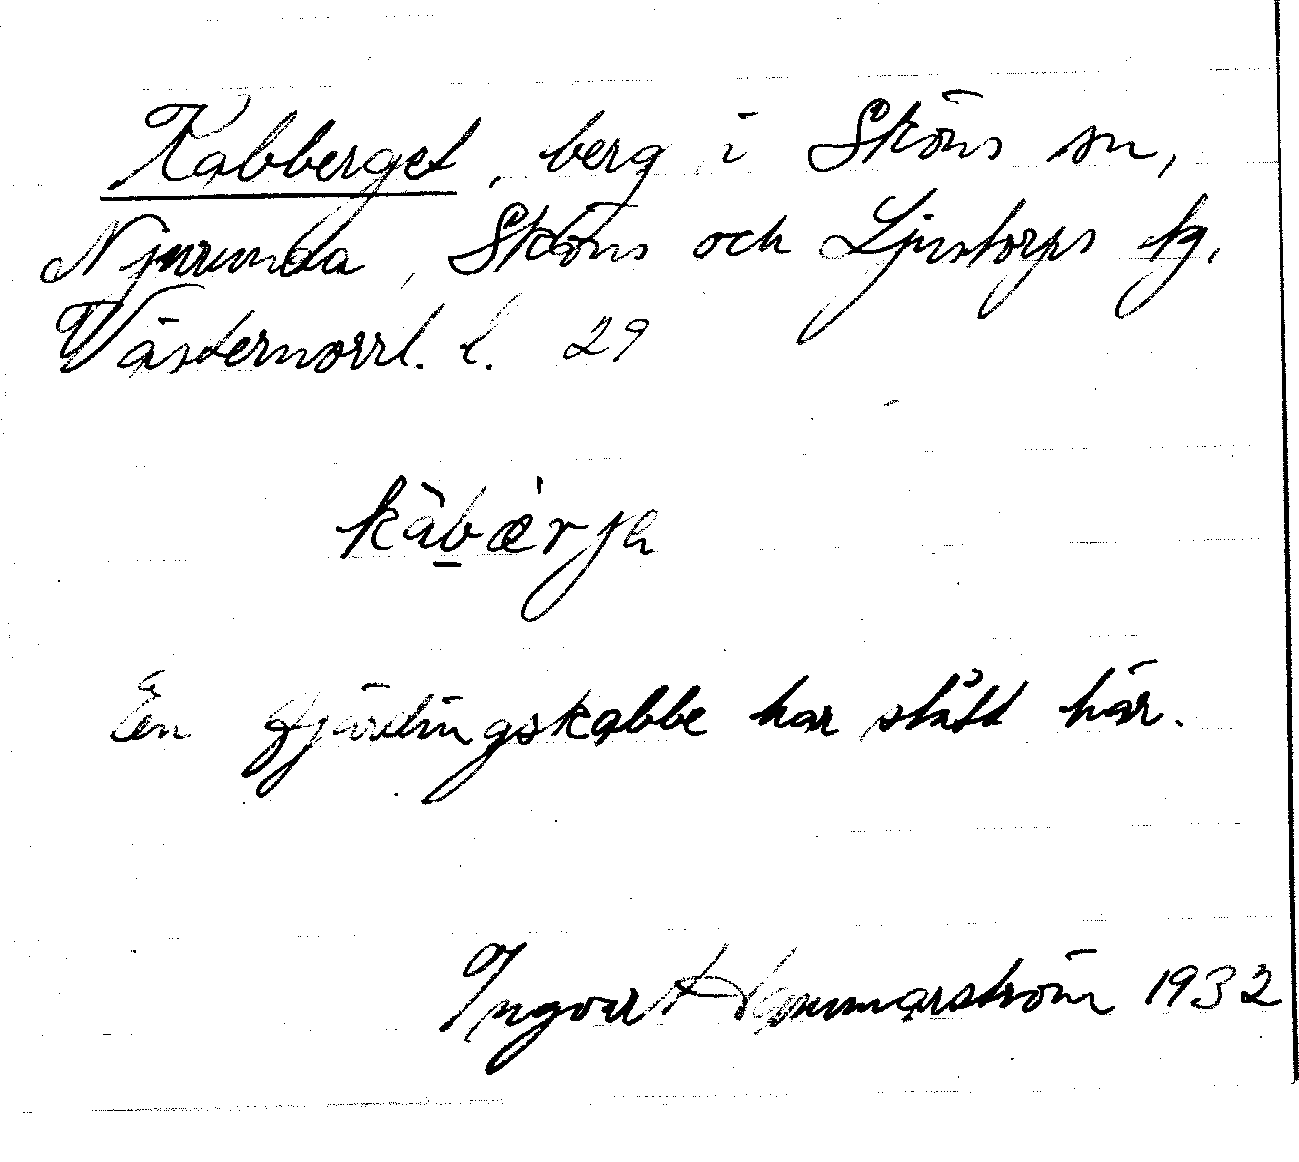 Kabberget, berg i Sköns sn,
Njurunda, Sköns och Ljustorps tg,
Västernorrl. l. 29
kàbæ̀rja
En fjärdingskabbe har stått här.
Ingvar Hammarström 1932